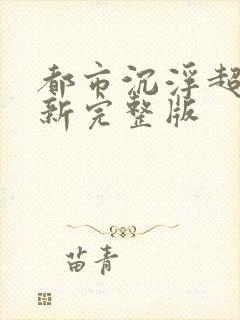 都市沉浮超
新完整版
苗青